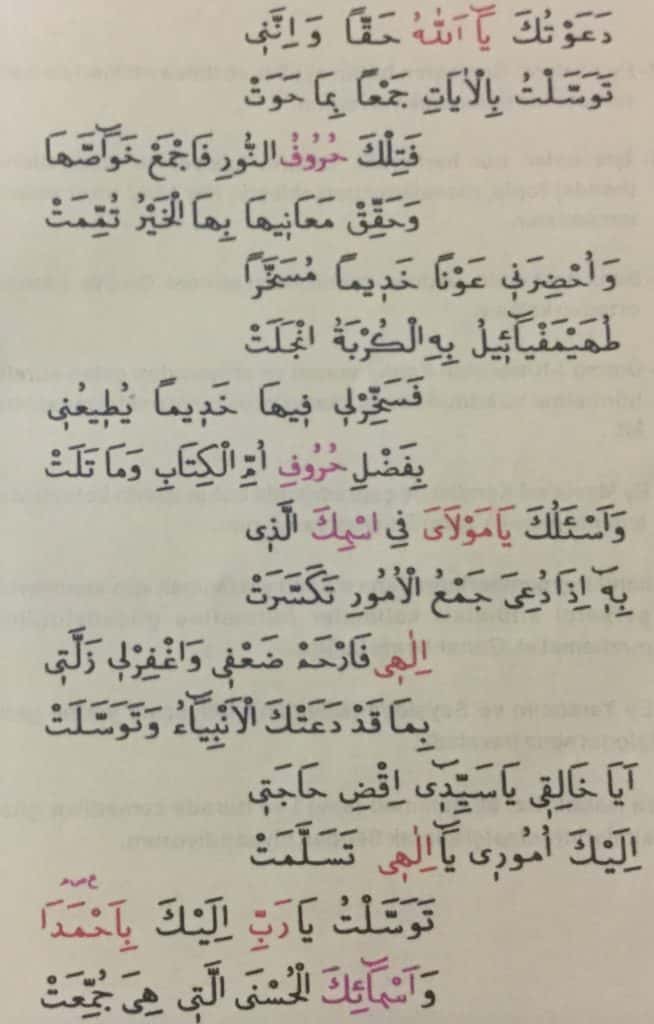 دَعَوْتُكَ يَٓا اَللّٰهُ حَقًّا وَ اِنَّنٖى
تَوَسَّلْتُ بِالْاٰيَاتِ جَمْعًا بِمَا حَوَتْ
فَتِلْكَ حُرُوفُ النُّورِ فَاجْمَعْ خَوَٓاصَّهَا
وَحَقِّقْ مَعَانٖيهَا بِهَا الْخَيْرُ تُمِّمَتْ
وَ اُحْضِرَنٖى عَوْنًا خَدٖيماً مُسَخَّرًا
طُهَيْمَفْيَٓائٖيلُ بِهِ الْكُرْبَةُ انْجَلَتْ
فَسَخِّرْلٖى فٖيهَا خَدٖيماً يُطٖيعُنٖى
بِفَضْلِ حُرُوفِ اُمِّ الْكِتَابِ وَمَا تَلَتْ
وَاَسْئَلُكَ يَامَوْلَاىَ فِى اسْمِكَ الَّذٖى
بِهٖٓ اِذَا دُعِىَ جَمْعُ الْاُمُورِ تَكَسَّرَتْ
اِلٰهٖى فَارْحَمْ ضَعْفٖى وَاغْفِرْلٖى زَلَّتٖى
بِمَا قَدْ دَعَتْكَ الْاَنْبِيَٓاءُ وَتَوَسَّلَتْ
اَيَا خَالِقٖى يَاسَيِّدٖى اقْضِ حَاجَتٖى
اِلَيْكَ اُمُورٖى يَٓا اِلٰهٖى تَسَلَّمَتْ
تَوَسَّلْتُ يَا رَبِّ اِلَيْكَ بِاَحْمَدَا
وَ اَسْمَٓائِكَ الْحُسْنَى الَّتٖى هِىَ جُمِّعَتْ